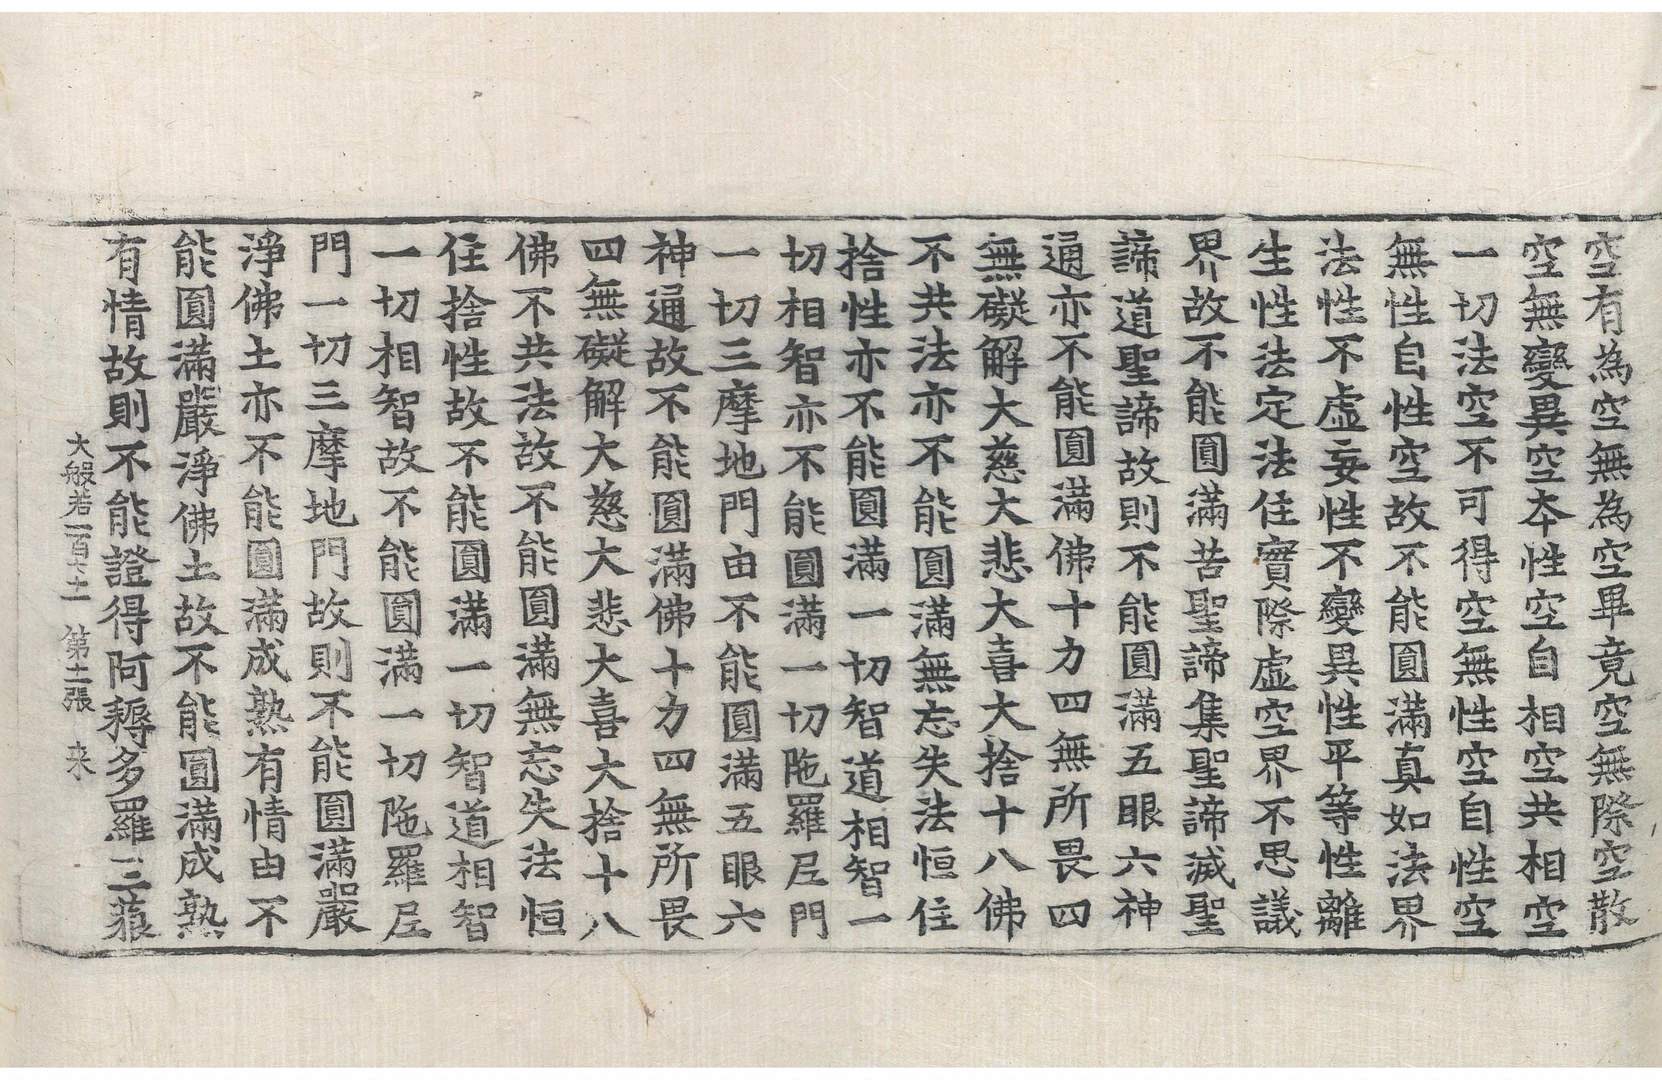 空有為空無為空畢竟空無際空散
空無變異空本性空自相空共相空
一切法空不可得空無性空自性空
無性自性空故不能圓滿真如法界
法性不虛妄性不變異性平等性離
生性法定法住實際虛空界不思議
界故不能圓滿苦聖諦集聖諦滅聖
諦道聖諦故則不能圓滿五眼六神
通亦不能圓滿佛十力四無所畏四
無礙解大慈大悲大喜大捨十八佛
不共法亦不能圓滿無忘失法恒住
捨性亦不能圓滿一切智道相智一
切相智亦不能圓滿一切陁羅尼門
一切三摩地門由不能圓滿五眼六
神通故不能圓滿佛十力四無所畏
四無礙解大慈大悲大喜大捨十八
佛不共法故不能圓滿無忘失法恒
住捨性故不能圓滿一切智道相智
一切相智故不能圓滿一切陁羅尼
門一切三摩地門故則不能圓滿嚴
淨佛土亦不能圓滿成熟有情由不
能圓滿嚴淨佛土故不能圓滿成熟
有情故則不能證得阿耨多羅三藐
大般若一百七十二 第十二張 来